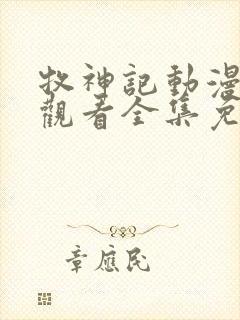 牧神記動漫
觀看全集免
章應民